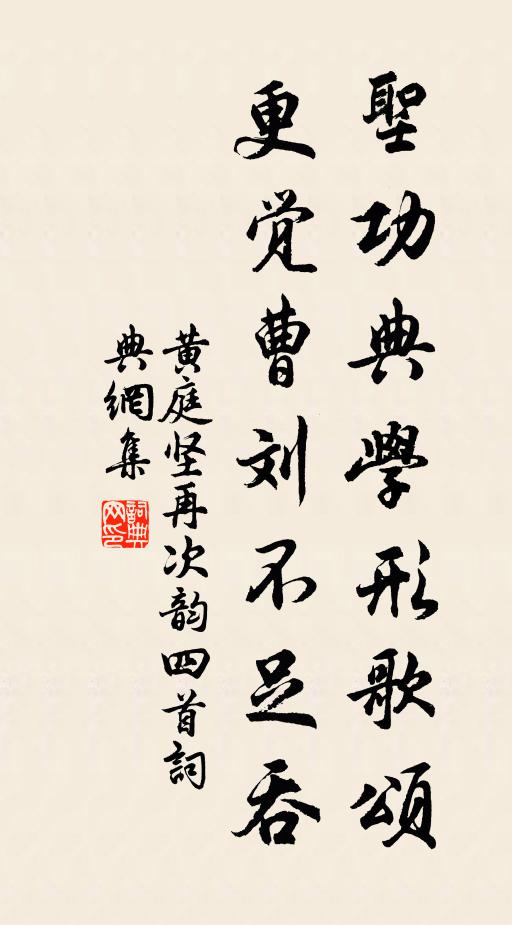 聖功典學形歌頌
更觉曹刘不足吞
黄庭坚再次韵四首詞
典網集
詞典
网印